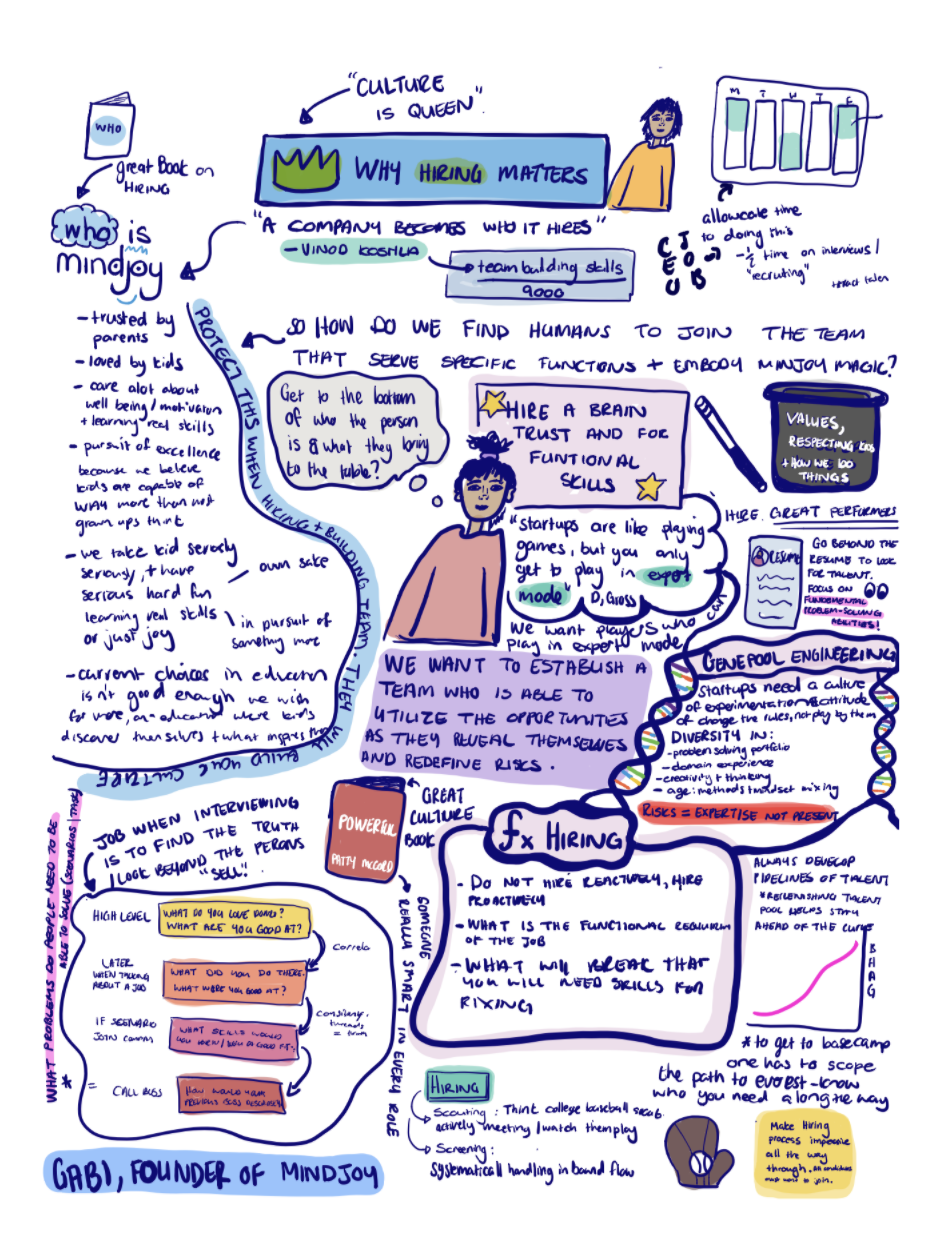 "CULTURE
IS QUEEN"
WHY HIRING MATTERS
WHO
great Book on
HIRING
M T W T F
allowcate time
to doing this
- ½ time on interviews /
"recruiting"
CEO
JOB
"A COMPANY BECOMES WHO IT HIRES"
- VINOD KOSHLA
team building skills
9000
who is
mindjoy
- trusted by
parents
- loved by kids
- care alot about
well being / motivation
+ learning real skills
- pursuit of excellence
because we believe
kids are capable of
WAY more than most
grown ups think
- we take kid seriously
seriously, + have
serious hard fun
learning real skills
or just joy
own sake
in pursuit of
something more
- current choices in education
isn't good enough we wish
for more, an education where kids
discover themselves + what inspires them
PROTECT THIS WHEN HIRING + BUILDING TEAM, THEY WILL BUILD YOUR CULTURE
SO HOW DO WE FIND HUMANS TO JOIN THE TEAM
THAT SERVE SPECIFIC FUNCTIONS + EMBODY MINJOY MAGIC?
Get to the bottom
of who the person
is & what they bring
to the table?
HIRE A BRAIN
TRUST AND FOR
FUNTIONAL
SKILLS
VALUES,
RESPECTING KIDS
+ HOW WE DO
THINGS
"Startups are like playing
games, but you only
get to play in expert
mode" D, Gross
We want players who can
play in expert mode
HIRE GREAT PERFORMERS
RESUME
GO BEYOND THE
RESUME TO LOOK
FOR TALENT.
FOCUS ON
FUNDEMENTAL
PROBLEM-SOLVING
ABILITIES!
WE WANT TO ESTABLISH A
TEAM WHO IS ABLE TO
UTILIZE THE OPPORTUNITES
AS THEY REVEAL THEMSELVES
AND REDEFINE RISKS.
GENEPOOL ENGINEERING
Startups need a culture
of experimentation & attitude
of change the rules, not play by them
DIVERSITY IN:
- problem solving portfolio
- domain experience
- creativity + thinking
- age: methods + mindset mixing
RISKS = EXPERTISE NOT PRESENT
WHAT PROBLEMS DO PEOPLE NEED TO BE
ABLE TO SOLVE (SCENARIOS / TASK)
*
JOB WHEN INTERVIEWING
IS TO FIND THE TRUTH
/ LOOK BEYOND THE PERONS
"SELL"
HIGH LEVEL
WHAT DO YOU LOVE DOING?
WHAT ARE YOU GOOD AT?
LATER
WHEN TALKING
ABOUT A JOB
WHAT DID YOU DO THERE.
WHAT WERE YOU GOOD AT?
IF SCENARIO
WHAT SKILLS WOULD
= CALL BOSS
HOW WOULD YOUR
PREVIOUS BOSS DESCRIBE
POWERFUL
PATTY MCCORD
GREAT
CULTURE
BOOK
SOMEONE
REALLY SMART IN EVERY ROLE
fx HIRING
- DO NOT HIRE REACTIVELY, HIRE
PROACTIVELY
- WHAT IS THE FUNCTIONAL
OF THE JOB
- WHAT WILL BREAK THAT
YOU WILL NEED SKILLS FOR
FIXING
ALWAYS DEVELOP
PIPELINES OF TALENT
*REPLENISHING TALENT
POOL HELPS STAY
AHEAD OF THE CURVE
BHAG
* to get to basecamp
one has to scope
the path to everest - know
who you need along the way
HIRING
Scouting : Think college baseball scout.
actively meeting / watch them play
Screening :
systematicall handling in bound flow
Make Hiring
process
all the way
through. All candidates
must want to join.
GABI, FOUNDER OF MINDJOY